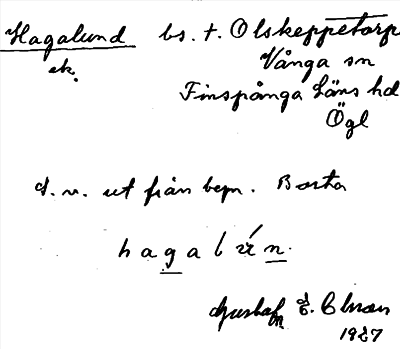 Hagalund bs. t. Olskeppetorp
ek. Vånga sn
Finspånga Läns hd
Ögl
d. v. ut från bepn. Borta
h a g a l ú n.
Gustaf E.
1927